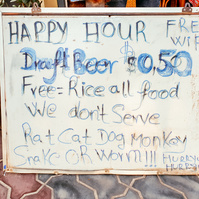 HAPPY HOUR FREE
WIFI
Draft Beer $0,50
Free = Rice all food
We don't Serve
Rat Cat Dog Monkey
Snake OR Worm!!! HURRY
HURRY